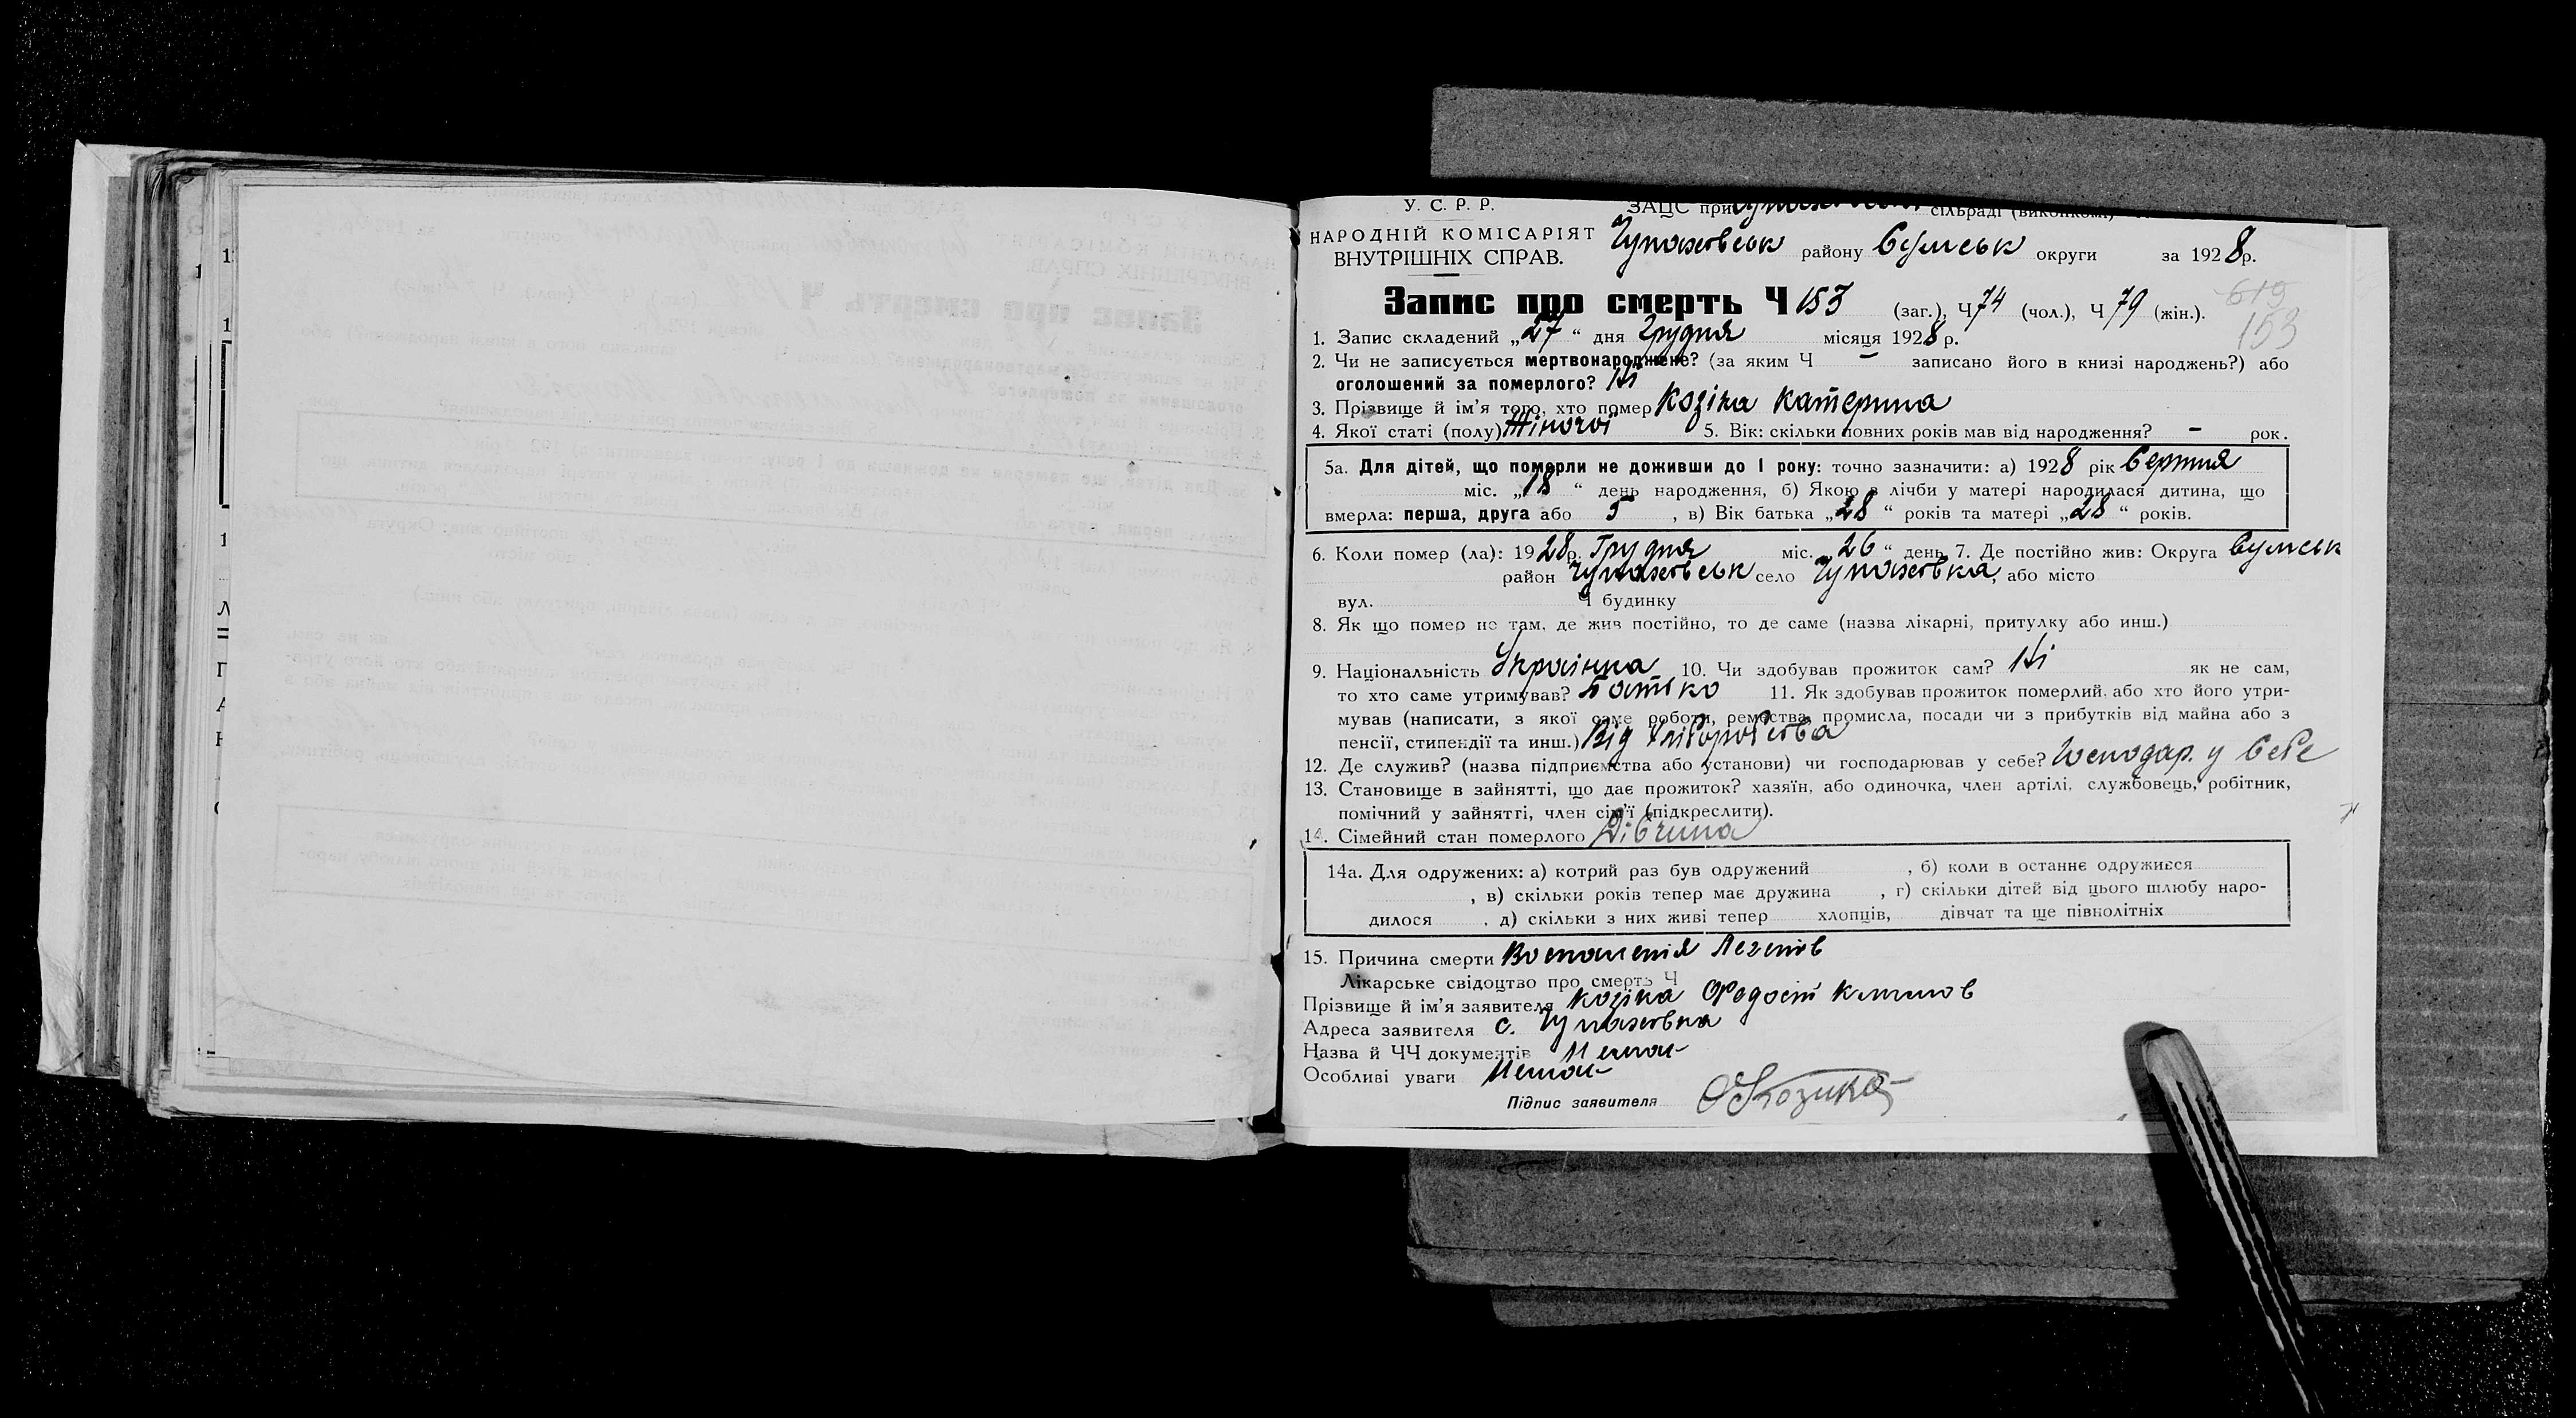 У. С. Р. Р.
ЗАЦС при сільраді (виконкомі)
НАРОДНІЙ КОМІСАРІЯТ
ВНУТРІШНІХ СПРАВ.
Чупахівськ району Сумськ округи за 1928 р.
619
Запис про смерть Ч 153 (заг.), Ч 74 (чол.), Ч 79 (жін.).
153
1. Запис складений „27“ дня Грудня місяця 1928 р.
2. Чи не записується мертвонароджене? (за яким Ч – записано його в книзі народжень?) або
оголошений за померлого? Ні
3. Прізвище й ім'я того, хто помер Козіка Катерина
4. Якої статі (полу) Жіночої 5. Вік: скільки повних років мав від народження? - рок.
5а. Для дітей, що померли не доживши до 1 року: точно зазначити: а) 1928 рік Серпня
міс. „18“ день народження, б) Якою з лічби у матері народилася дитина, що
вмерла: перша, друга або 5, в) Вік батька „28“ років та матері „28“ років.
6. Коли помер (ла): 1928 р. Грудня міс. „26“ день, 7. Де постійно жив: Округа Сумськ
район Чупахівськ село Чупахівка, або місто
вул. Ч будинку
8. Як що помер не там, де жив постійно, то де саме (назва лікарні, притулку або инш.)
9. Національність Українка 10. Чи здобував прожиток сам? Ні як не сам,
то хто саме утримував? Батько 11. Як здобував прожиток померлий, або хто його утри-
мував (написати, з якої саме роботи, ремества, промисла, посади чи з прибутків від майна або з
пенсії, стипендії та инш.) Від хліборобства
12. Де служив? (назва підприємства або установи) чи господарював у себе? Господар. у себе
13. Становище в зайнятті, що дає прожиток? хазяїн, або одиночка, член артілі, службовець, робітник,
помічний у зайнятті, член сім'ї (підкреслити).
14. Сімейний стан померлого Дівчина
14а. Для одружених: а) котрий раз був одружений , б) коли в останнє одружився
, в) скільки років тепер має дружина , г) скільки дітей від цього шлюбу наро-
дилося , д) скільки з них живі тепер хлопців, дівчат та ще півнолітніх
15. Причина смерти Воспаленія Легенів
Лікарське свідоцтво про смерть Ч
Прізвище й ім'я заявителя Козіка Федосій
Адреса заявителя с. Чупахівка
Назва й ЧЧ документів Немає
Особливі уваги Немає
Підпис заявителя Ф Козика